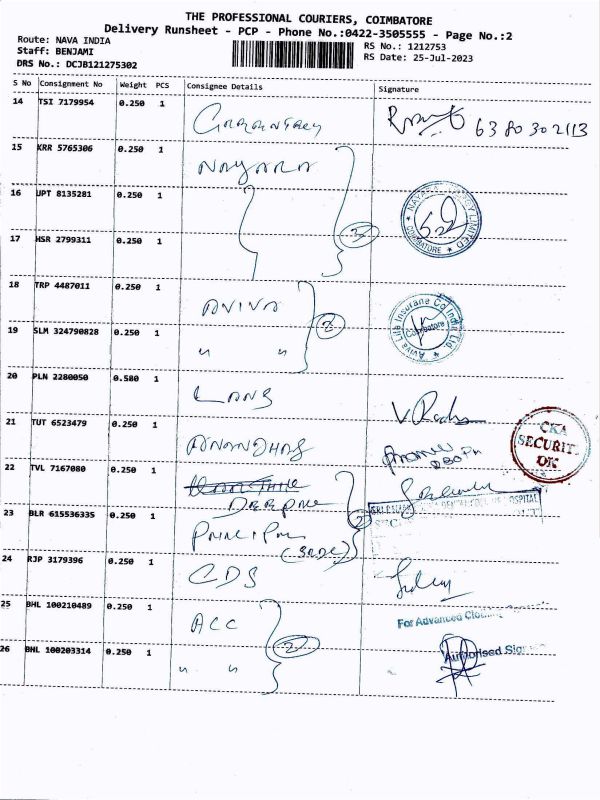 THE PROFESSIONAL COURIERS, COIMBATORE
Delivery Runsheet - PCP - Phone No.:0422-3505555 - Page No.:2
Route: NAVA INDIA
RS No.: 1212753
Staff: BENJAMI
RS Date: 25-Jul-2023
DRS No.: DCJB121275302
S No Consignment No Weight PCS Consignee Details Signature
14 TSI 7179954 0.250 1 6380302113
15 KRR 5765306 0.250 1 NAYARA
16 UPT 8135281 0.250 1
NAYARA ENERGY LIMITED COIMBATORE
17 HSR 2799311 0.250 1 3
18 TRP 4487011 0.250 1 AVIVA
Aviva Life Insurane Co India Ltd. Coimbatore
19 SLM 324790828 0.250 1 " " 2
20 PLN 2280050 0.580 1 LANS
V. Radha
21 TUT 6523479 0.250 1 ANANDHAS
CKA SECURITY OK
22 TVL 7167080 0.250 1
HOSPITAL
23 BLR 615536335 0.250 1 2
24 RJP 3179396 0.250 1 CDS
25 BHL 100210489 0.250 1 ACC
For Advanced
26 BHL 100203314 0.250 1 " " 2
Authorised